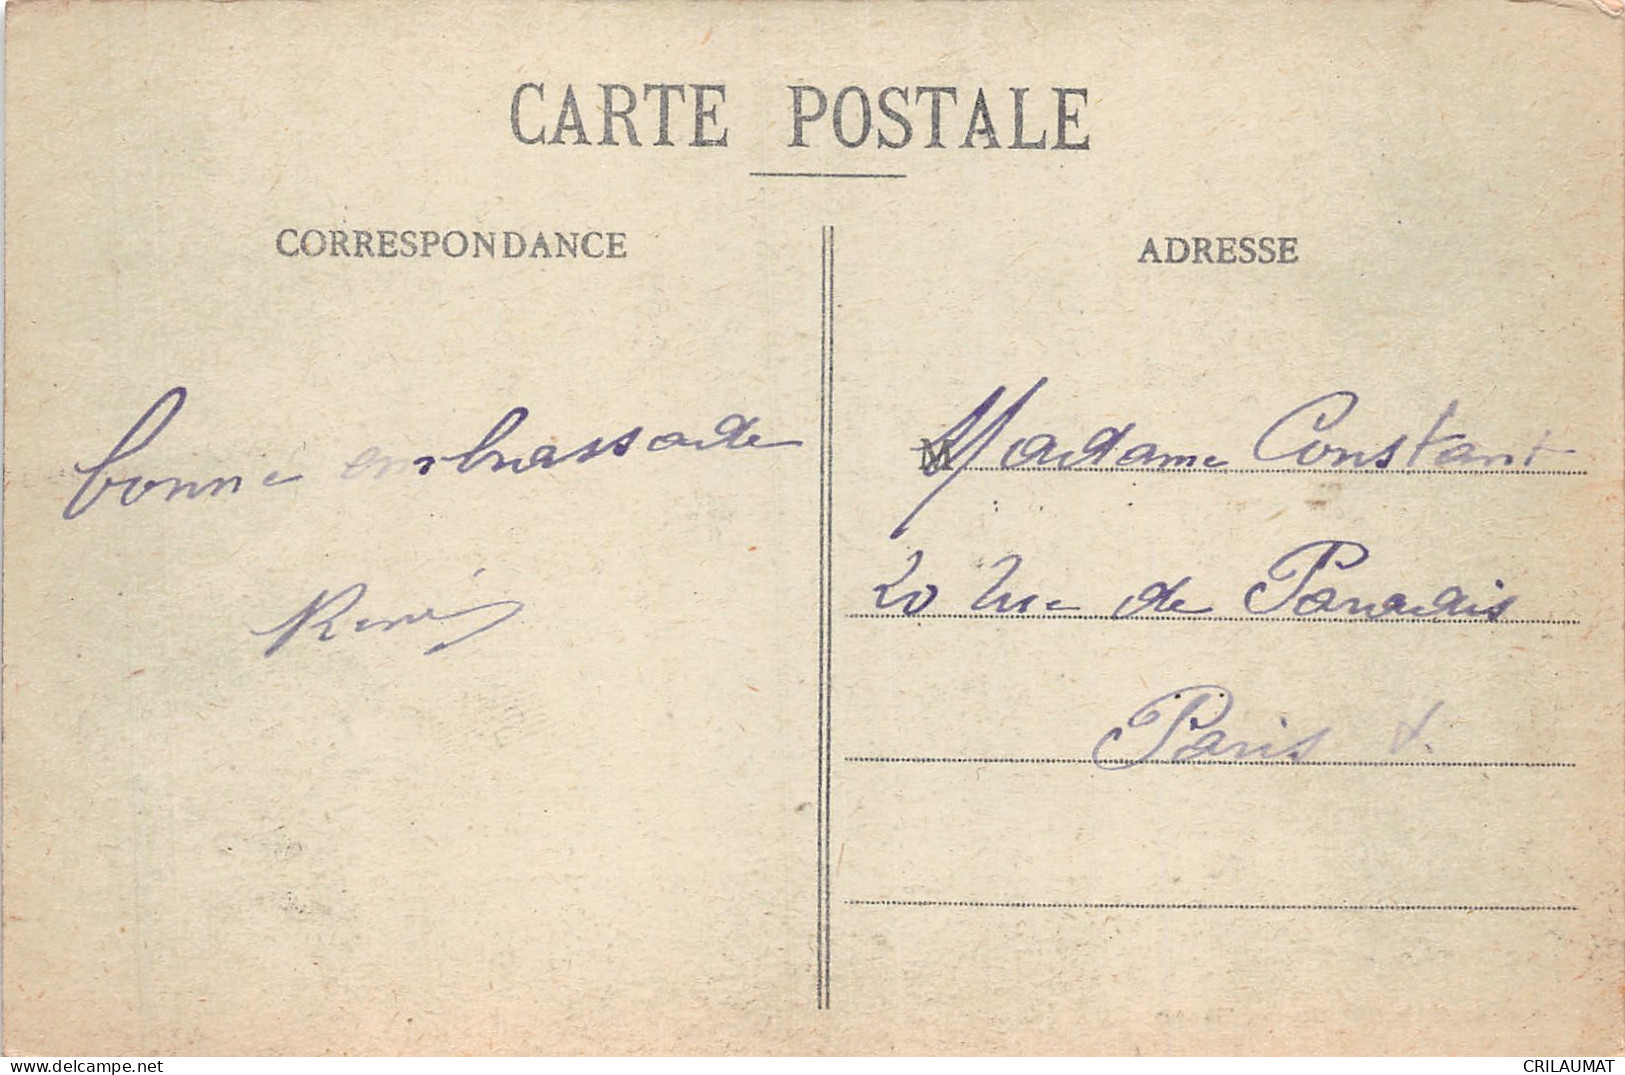 CARTE POSTALE
CORRESPONDANCE
ADRESSE
bonne embrassade
René
M Madame Constant
20 rue de Paradis
Paris
delcampe.net
CRILAUMAT